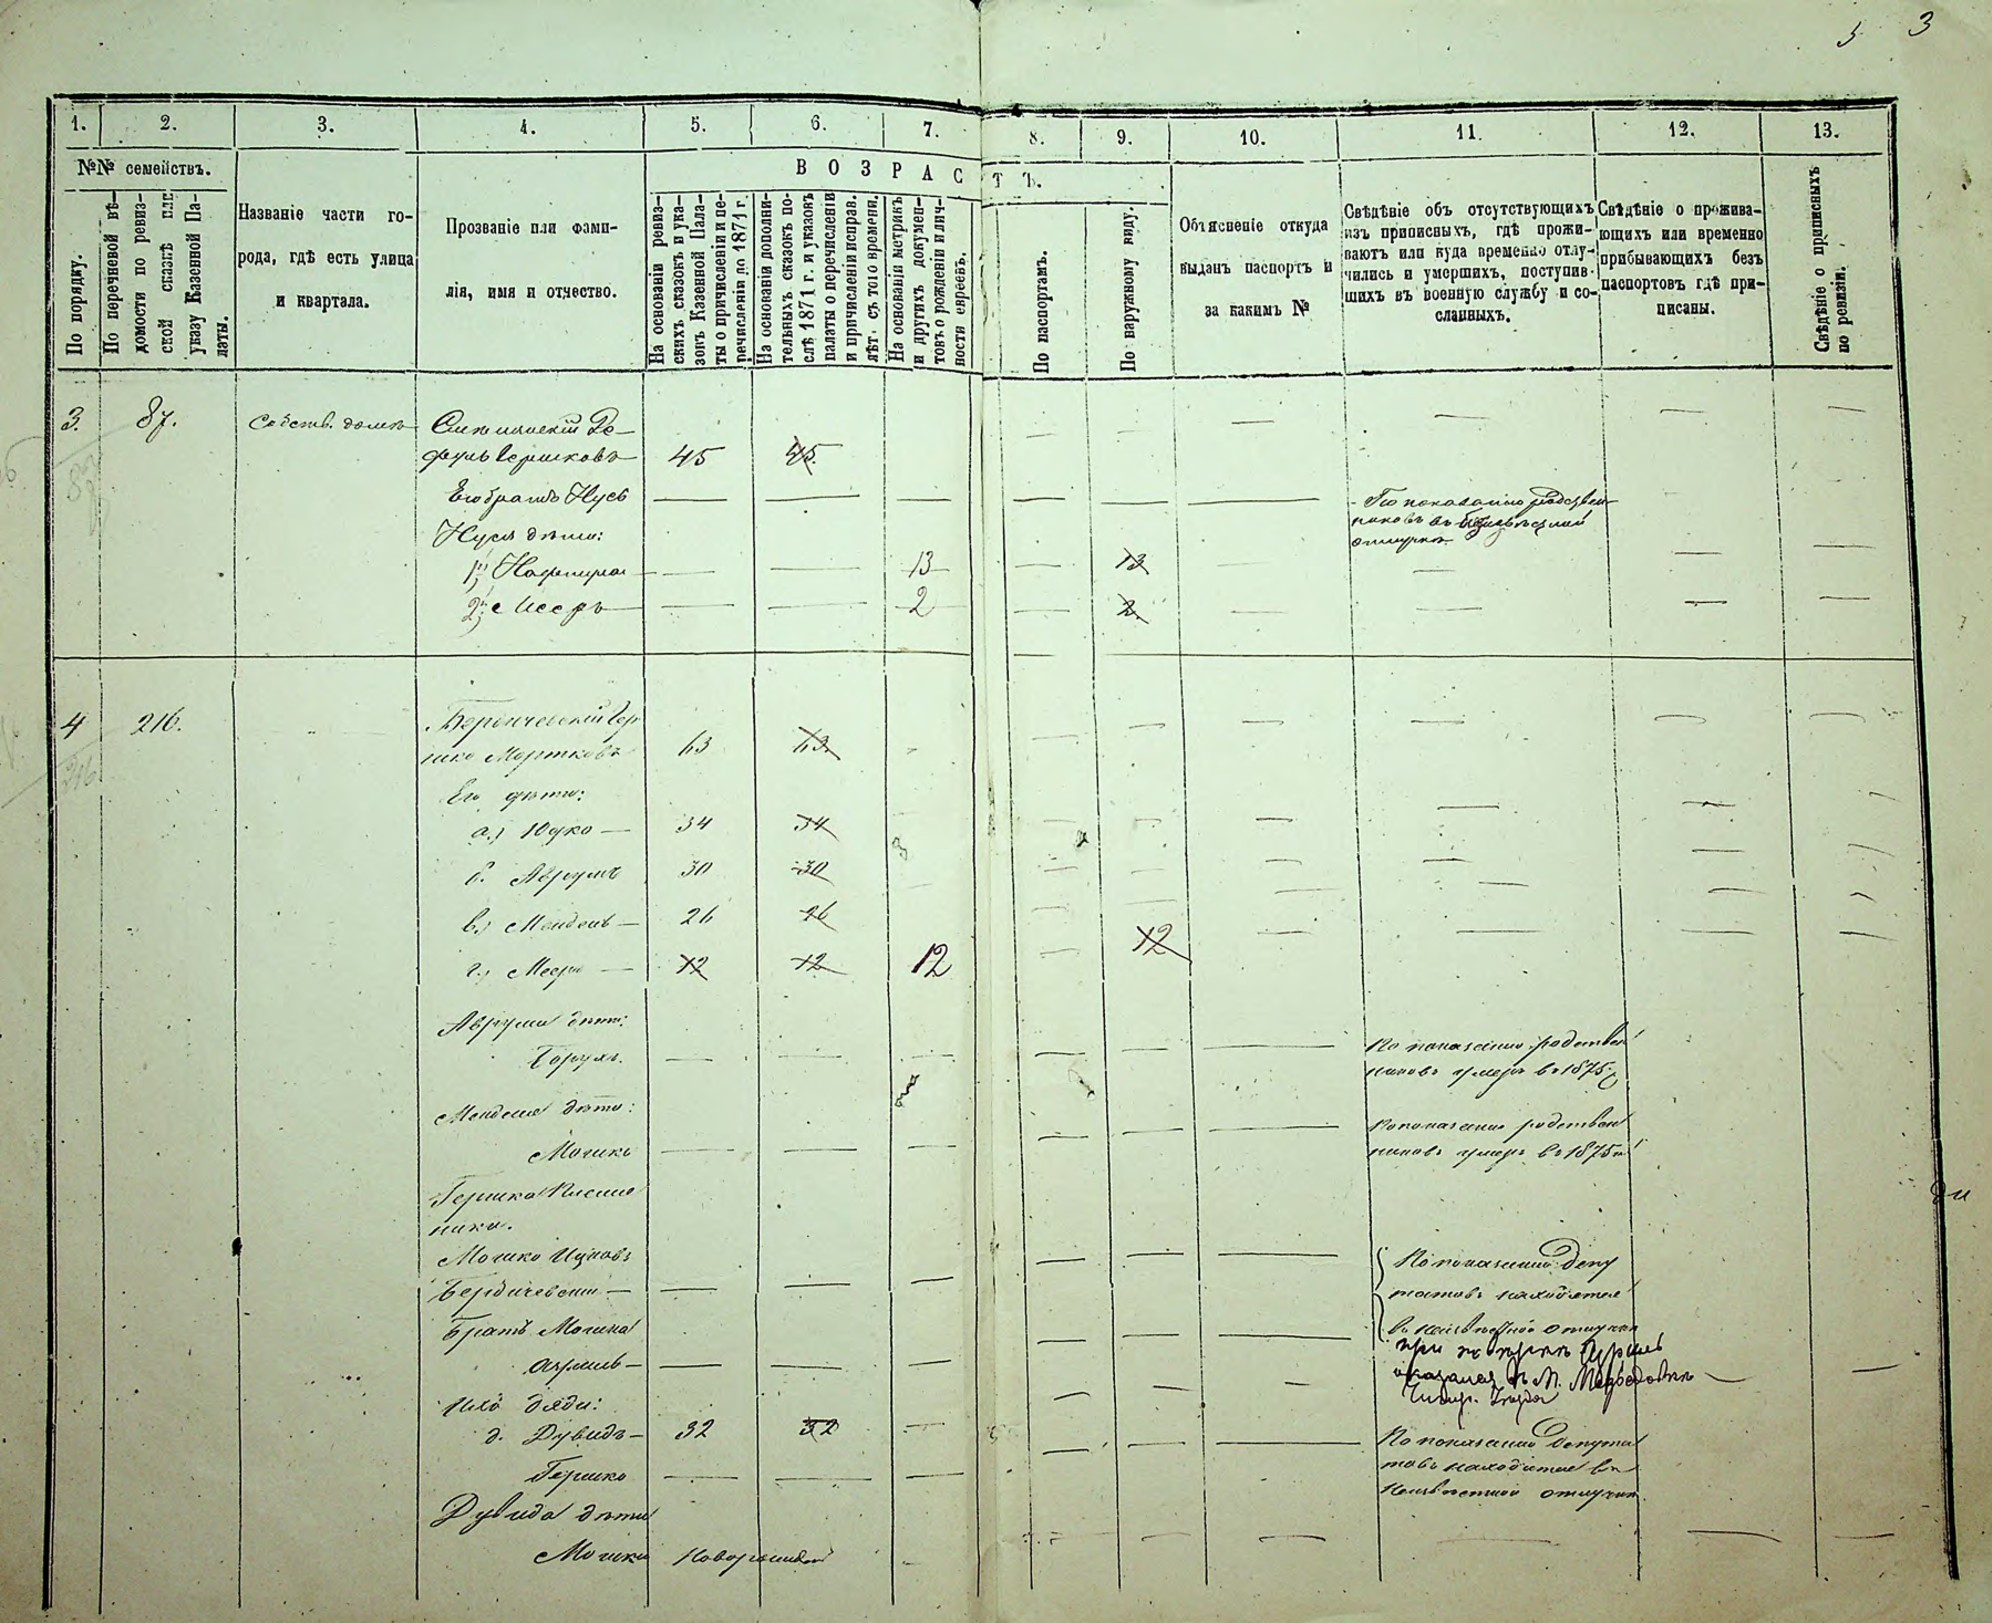 5 3
1. 2. 3. 4. 5. 6. 7. 8. 9. 10. 11. 12. 13.
№№ семействъ.
В О З Р А С Т Ъ.
По порядку.
По перечневой вѣ-
домости по ревиз-
ской сказкѣ или
указу Казенной Па-
латы.
Названіе части го-
рода, гдѣ есть улица
и квартала.
Прозваніе или фами-
лія, имя и отчество.
На основаніи ревиз-
скихъ сказокъ и ука-
зовъ Казенной Пала-
ты о причисленіи и пе-
речисленіи до 1871 г.
На основаніи дополни-
тельныхъ сказокъ по-
слѣ 1871 г. и указовъ
палаты о перечисленіи
и причисленіи исправ.
лѣт. съ того времени.
На основаніи метрикъ
и другихъ докумен-
товъ о рожденіи и лич-
ности евреевъ.
По паспортамъ.
По наружному виду.
Объясненіе откуда
выданъ паспортъ и
за какимъ №
Свѣдѣніе объ отсутствующихъ
изъ приписныхъ, гдѣ прожи-
ваютъ или куда временно отлу-
чились и умершихъ, поступив-
шихъ въ военную службу и со-
сланныхъ.
Свѣдѣніе о прожива-
ющихъ или временно
прибывающихъ безъ
паспортовъ гдѣ при-
писаны.
Свѣдѣніе о приписныхъ
по ревизіи.
3. 87. Собств. домъ
Гершковъ 45 45
Его братъ Нусь
По показанію родствен
никовъ въ безъизвѣстной
отлучкѣ
Нуся дѣти:
1й 13 13
2й Мееръ 2 2
4 216. Бердичевскій Гер
шко Мортковъ 63 63
Его дѣти:
а.) Юдко 34 34
б. Аврумъ 30 30
в.) Мендель 26 26
г.) Мееръ 12 12 12 12
Аврума дѣти:
Борухъ.
По показанію родствен
никовъ умеръ въ 1875 г
Менделя дѣти:
Мошко
По показанію родствен
никовъ умеръ въ 1875 г
Гершка племян
ники.
Мошко Ицковъ
Бердичевскій
По показанію депу
татовъ находятся
въ неизвѣстной отлучкѣ
Братъ Мошка
оказался въ М. Медведовкѣ
Ихъ дяди:
д. Дувидъ 32 32
Гершко
По показанію депута
товъ находится въ
неизвѣстной отлучкѣ
Дувида дѣти
Мошко Новорожден